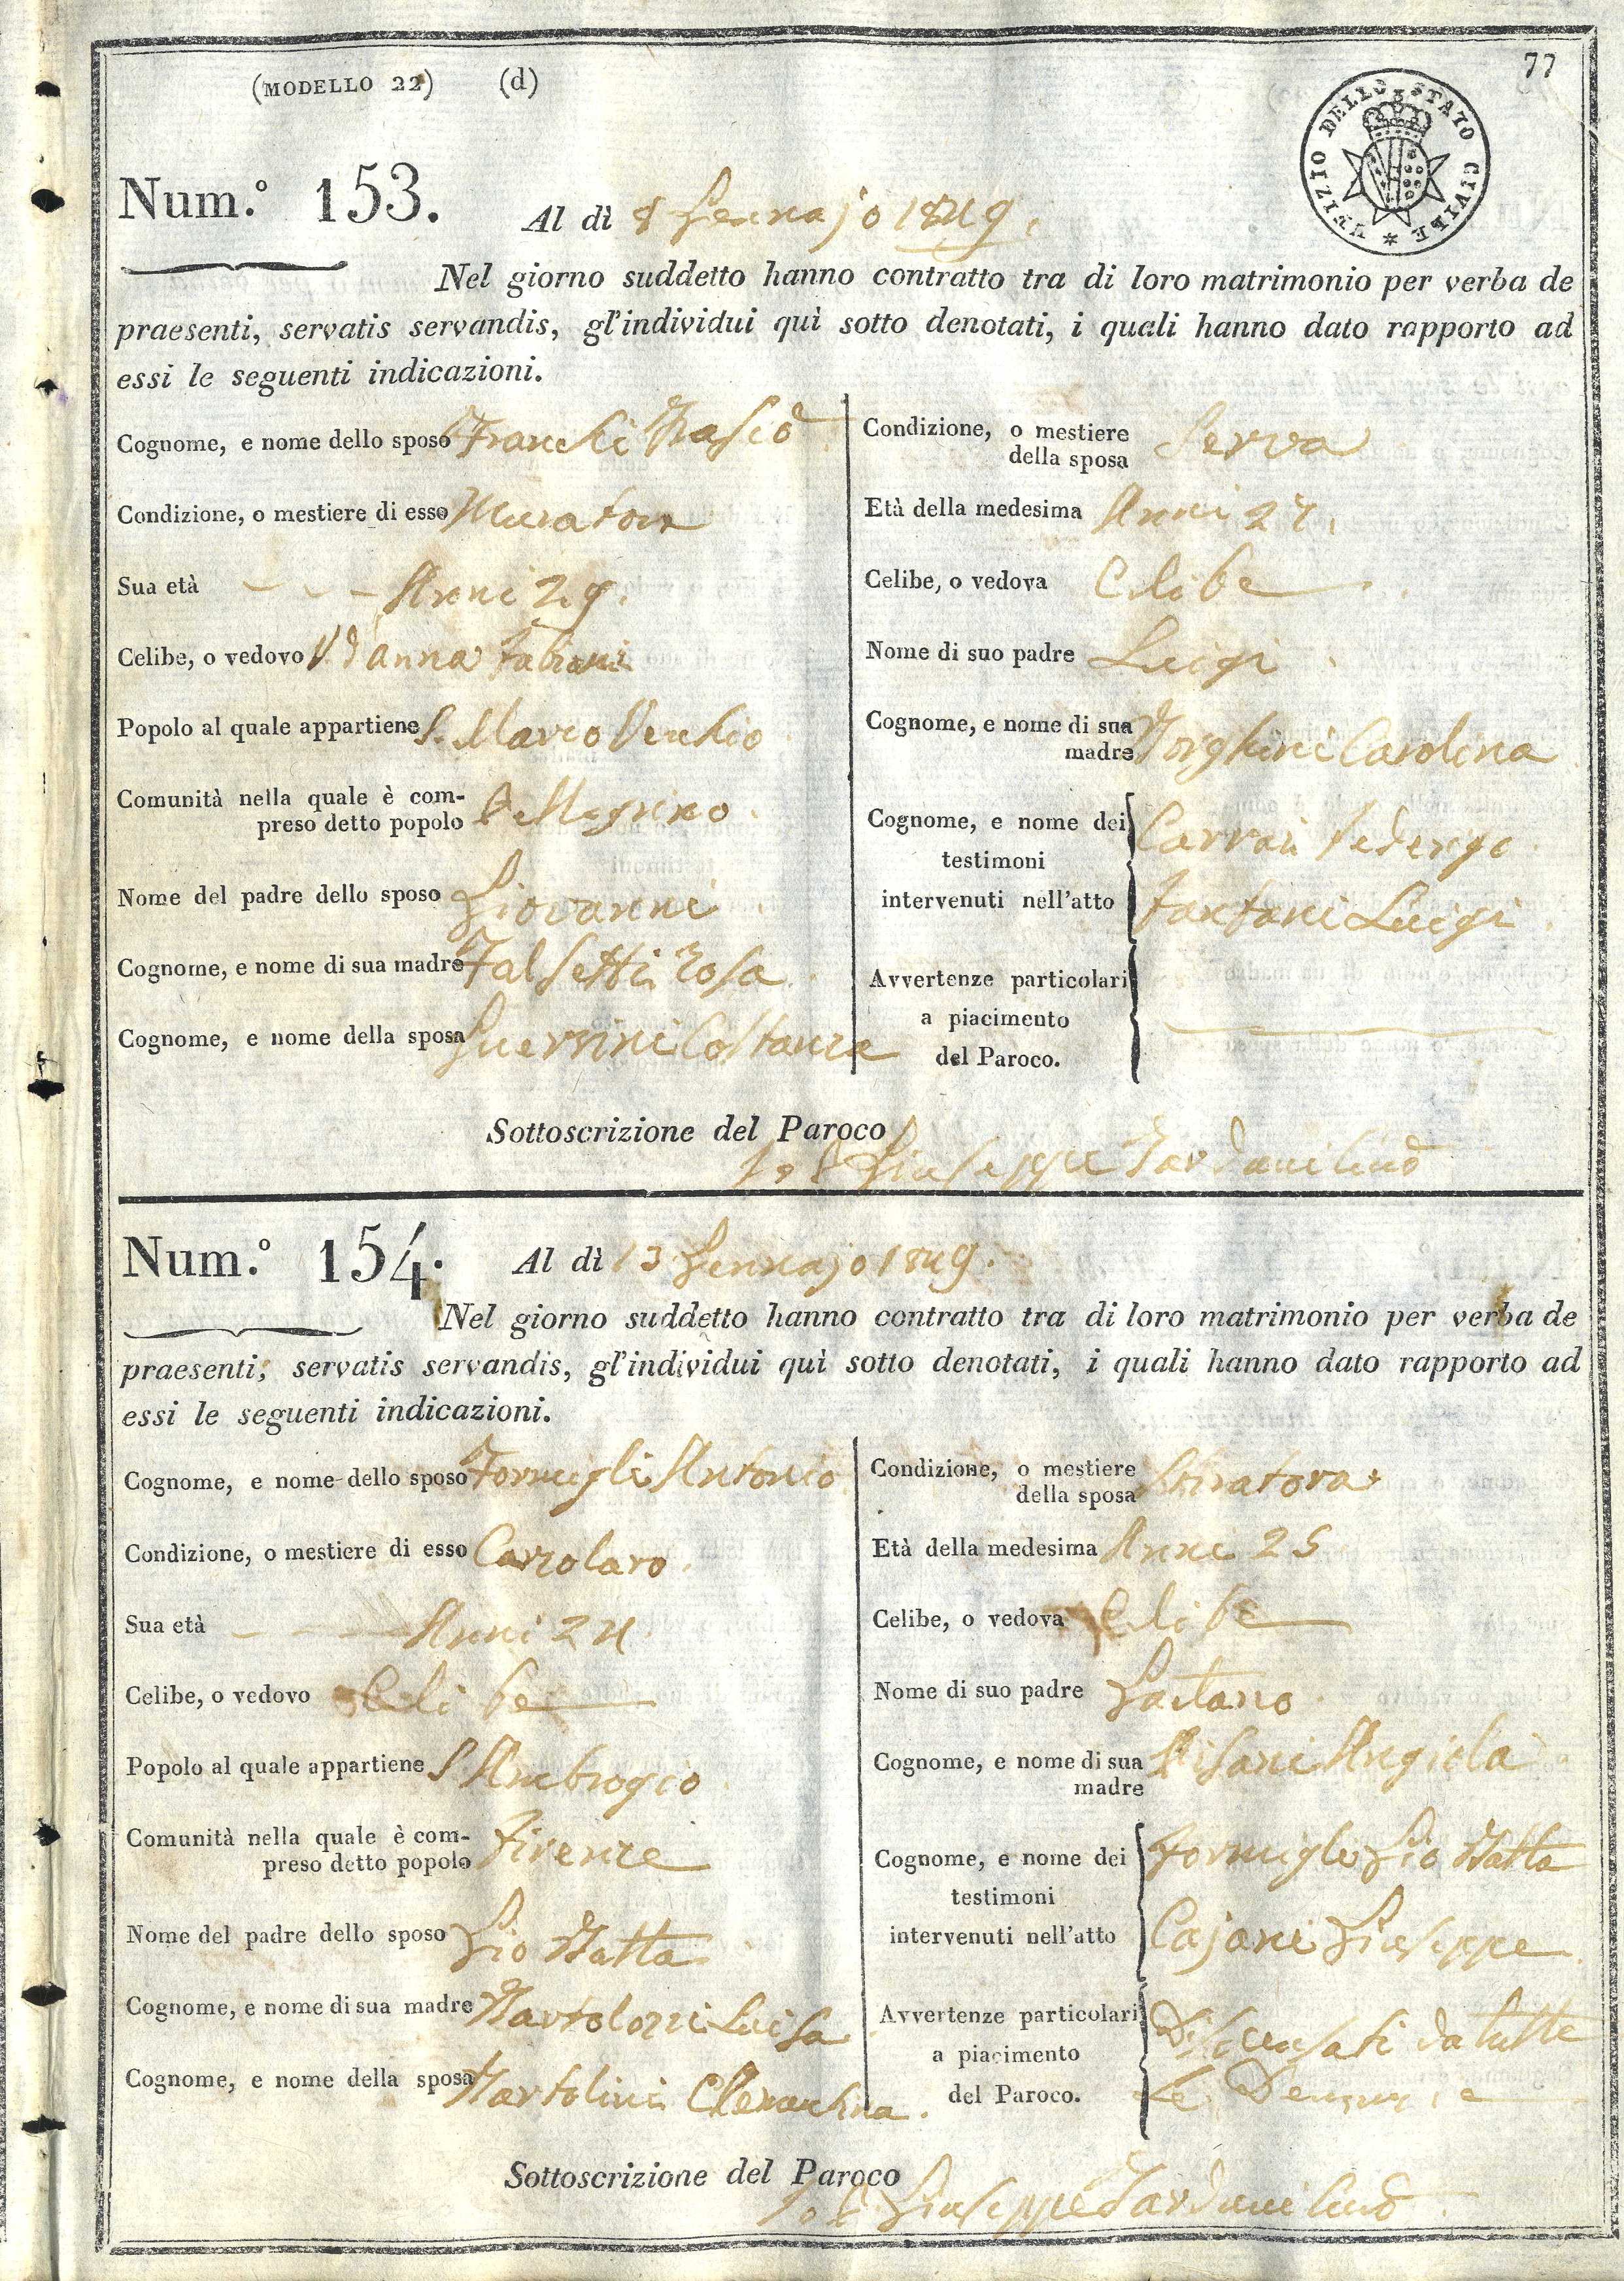 77
(MODELLO 22) (d)
UFIZIO DELLO STATO CIVILE *
Num.º 153.
Al dì 8 Gennajo 1849.
Nel giorno suddetto hanno contratto tra di loro matrimonio per verba de
praesenti, servatis servandis, gl'individui quì sotto denotati, i quali hanno dato rapporto ad
essi le seguenti indicazioni.
Cognome, e nome dello sposo Franchi
Condizione, o mestiere di esso Muratore
Sua età Anni 29.
Celibe, o vedovo
Popolo al quale appartiene S. Marco Vecchio
Comunità nella quale è com-
preso detto popolo Pellegrino.
Nome del padre dello sposo Giovanni
Cognome, e nome di sua madre Falsetti Rosa
Cognome, e nome della sposa Guerrini Costanza
Condizione, o mestiere
della sposa Serva
Età della medesima Anni
Celibe, o vedova Celibe
Nome di suo padre Luigi
Cognome, e nome di sua
madre Borghini Carolina
Cognome, e nome dei
testimoni
intervenuti nell'atto
Carrai Federigo
Fantani Luigi
Avvertenze particolari
a piacimento
del Paroco.
Sottoscrizione del Paroco
Giuseppe
Num.º 154.
Al dì 13 Gennajo 1849.
Nel giorno suddetto hanno contratto tra di loro matrimonio per verba de
praesenti, servatis servandis, gl'individui quì sotto denotati, i quali hanno dato rapporto ad
essi le seguenti indicazioni.
Cognome, e nome dello sposo Formigli Antonio
Condizione, o mestiere di esso
Sua età Anni 24
Celibe, o vedovo Celibe
Popolo al quale appartiene S Ambrogio
Comunità nella quale è com-
preso detto popolo Firenze
Nome del padre dello sposo Gio Batta
Cognome, e nome di sua madre Bartolozzi Luisa
Cognome, e nome della sposa Bartolini Clementina.
Condizione, o mestiere
della sposa Stiratora
Età della medesima Anni 25
Celibe, o vedova Celibe
Nome di suo padre Gaetano
Cognome, e nome di sua
madre Pisani Angiola
Cognome, e nome dei
testimoni
intervenuti nell'atto
Formigli Gio Batta
Cajani Giuseppe
Avvertenze particolari
a piacimento
del Paroco.
Dispensati da tutte
le Denunzie
Sottoscrizione del Paroco
Giuseppe